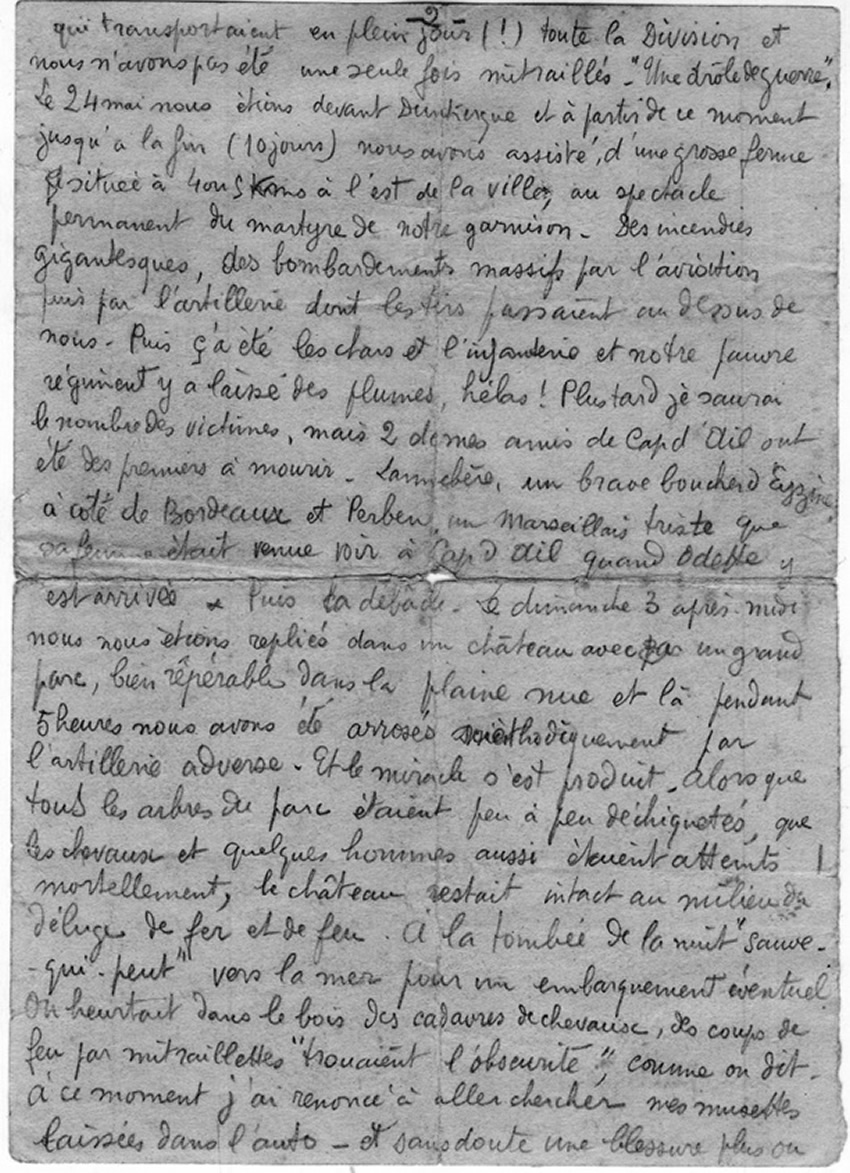 2
qui transportaient en plein jour (!) toute la Division et
nous n'avons pas été une seule fois mitraillés - "Une drôle de guerre".
Le 24 mai nous étions devant Dunkerque et à partir de ce moment
jusqu'à la fin (10 jours) nous avons assisté, d'une grosse ferme
située à 4 ou 5 Kms à l'est de la ville, au spectacle
permanent du martyre de notre garnison - Des incendies
gigantesques, des bombardements massifs par l'aviation
puis par l'artillerie dont les tirs passaient au dessus de
nous - Puis ç'a été les chars et l'infanterie et notre pauvre
régiment y a laissé des plumes, hélas ! Plus tard je saurai
le nombre des victimes, mais 2 de mes amis de Cap d'Ail ont
été des premiers à mourir - Lannebère, un brave boucher d'Eyzines
à côté de Bordeaux et Perben, un Marseillais triste que
sa femme était venue voir à Cap d'Ail quand Odette y
est arrivée - Puis la débâcle - Le dimanche 3 après-midi
nous nous étions repliés dans un château avec un grand
parc, bien répérable dans la plaine nue et là pendant
5 heures nous avons été arrosés méthodiquement par
l'artillerie adverse - Et le miracle s'est produit - alors que
tous les arbres du parc étaient peu à peu déchiquetés, que
les chevaux et quelques hommes aussi étaient atteints
mortellement, le château restait intact au milieu du
déluge de fer et de feu. À la tombée de la nuit "sauve-
-qui-peut" vers la mer pour un embarquement éventuel
On heurtait dans le bois des cadavres de chevaux, des coups de
feu par mitraillettes "trouaient l'obscurité", comme on dit -
À ce moment j'ai renoncé à aller chercher mes musettes
laissées dans l'auto - et sans doute une blessure plus ou